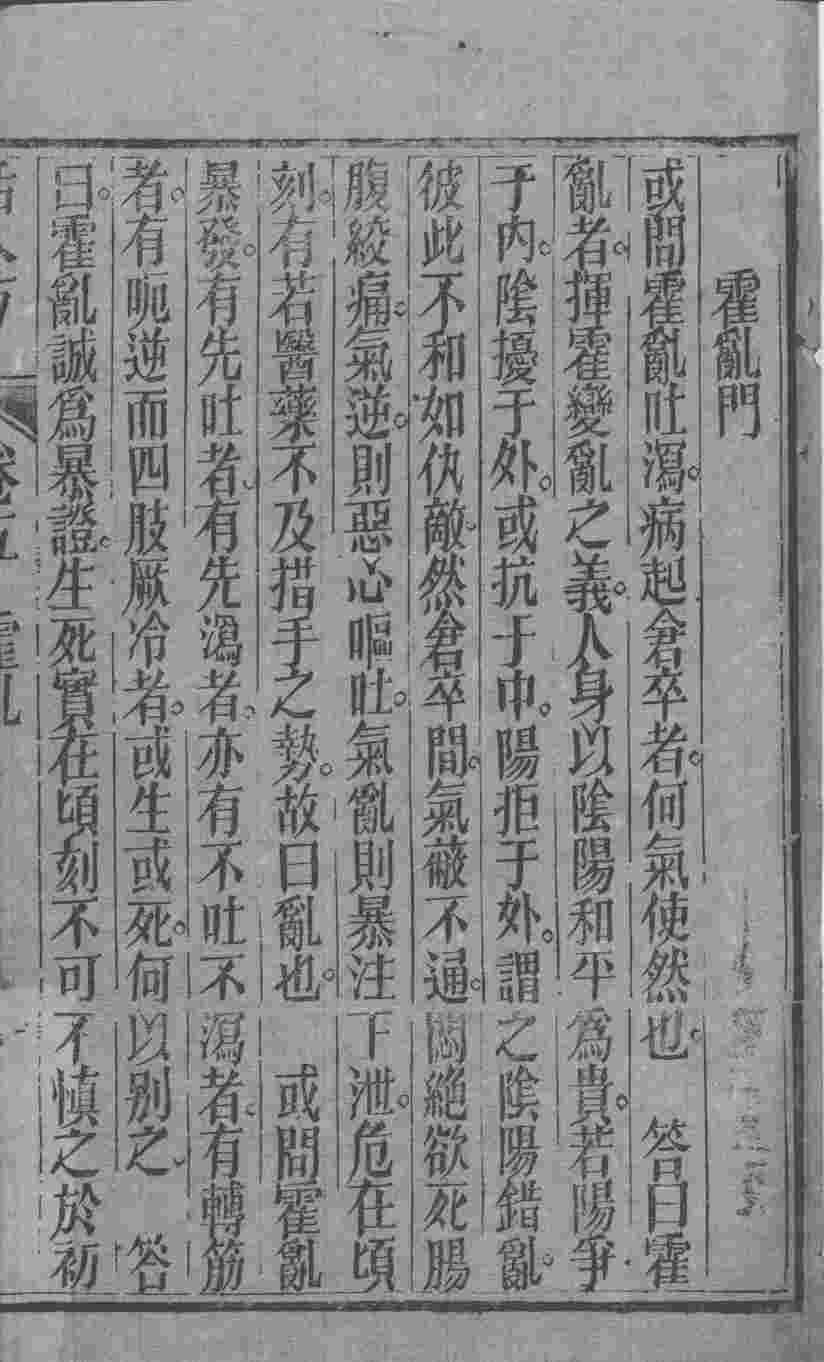 霍亂門
或問霍亂吐瀉。病起倉卒者。何氣使然也。　答曰霍
亂者。揮霍變亂之義。人身以陰陽和平爲貴。若陽爭
于內。陰擾于外。或抗于中。陽拒于外。謂之陰陽錯亂。
彼此不和如仇敵。然倉卒間。氣蔽不通。悶絶欲死腸
腹絞痛。氣逆。則惡心嘔吐。氣亂則暴注下泄。危在頃
刻。有若醫藥不及措手之勢。故曰亂也。　或問霍亂
暴發。有先吐者、有先瀉者、亦有不吐不瀉者。有轉筋
者。有呃逆而四肢厥冷者。或生或死。何以别之、　答
曰。霍亂誠爲暴證。生死實在頃刻不可不慎之於初
卷五　霍亂